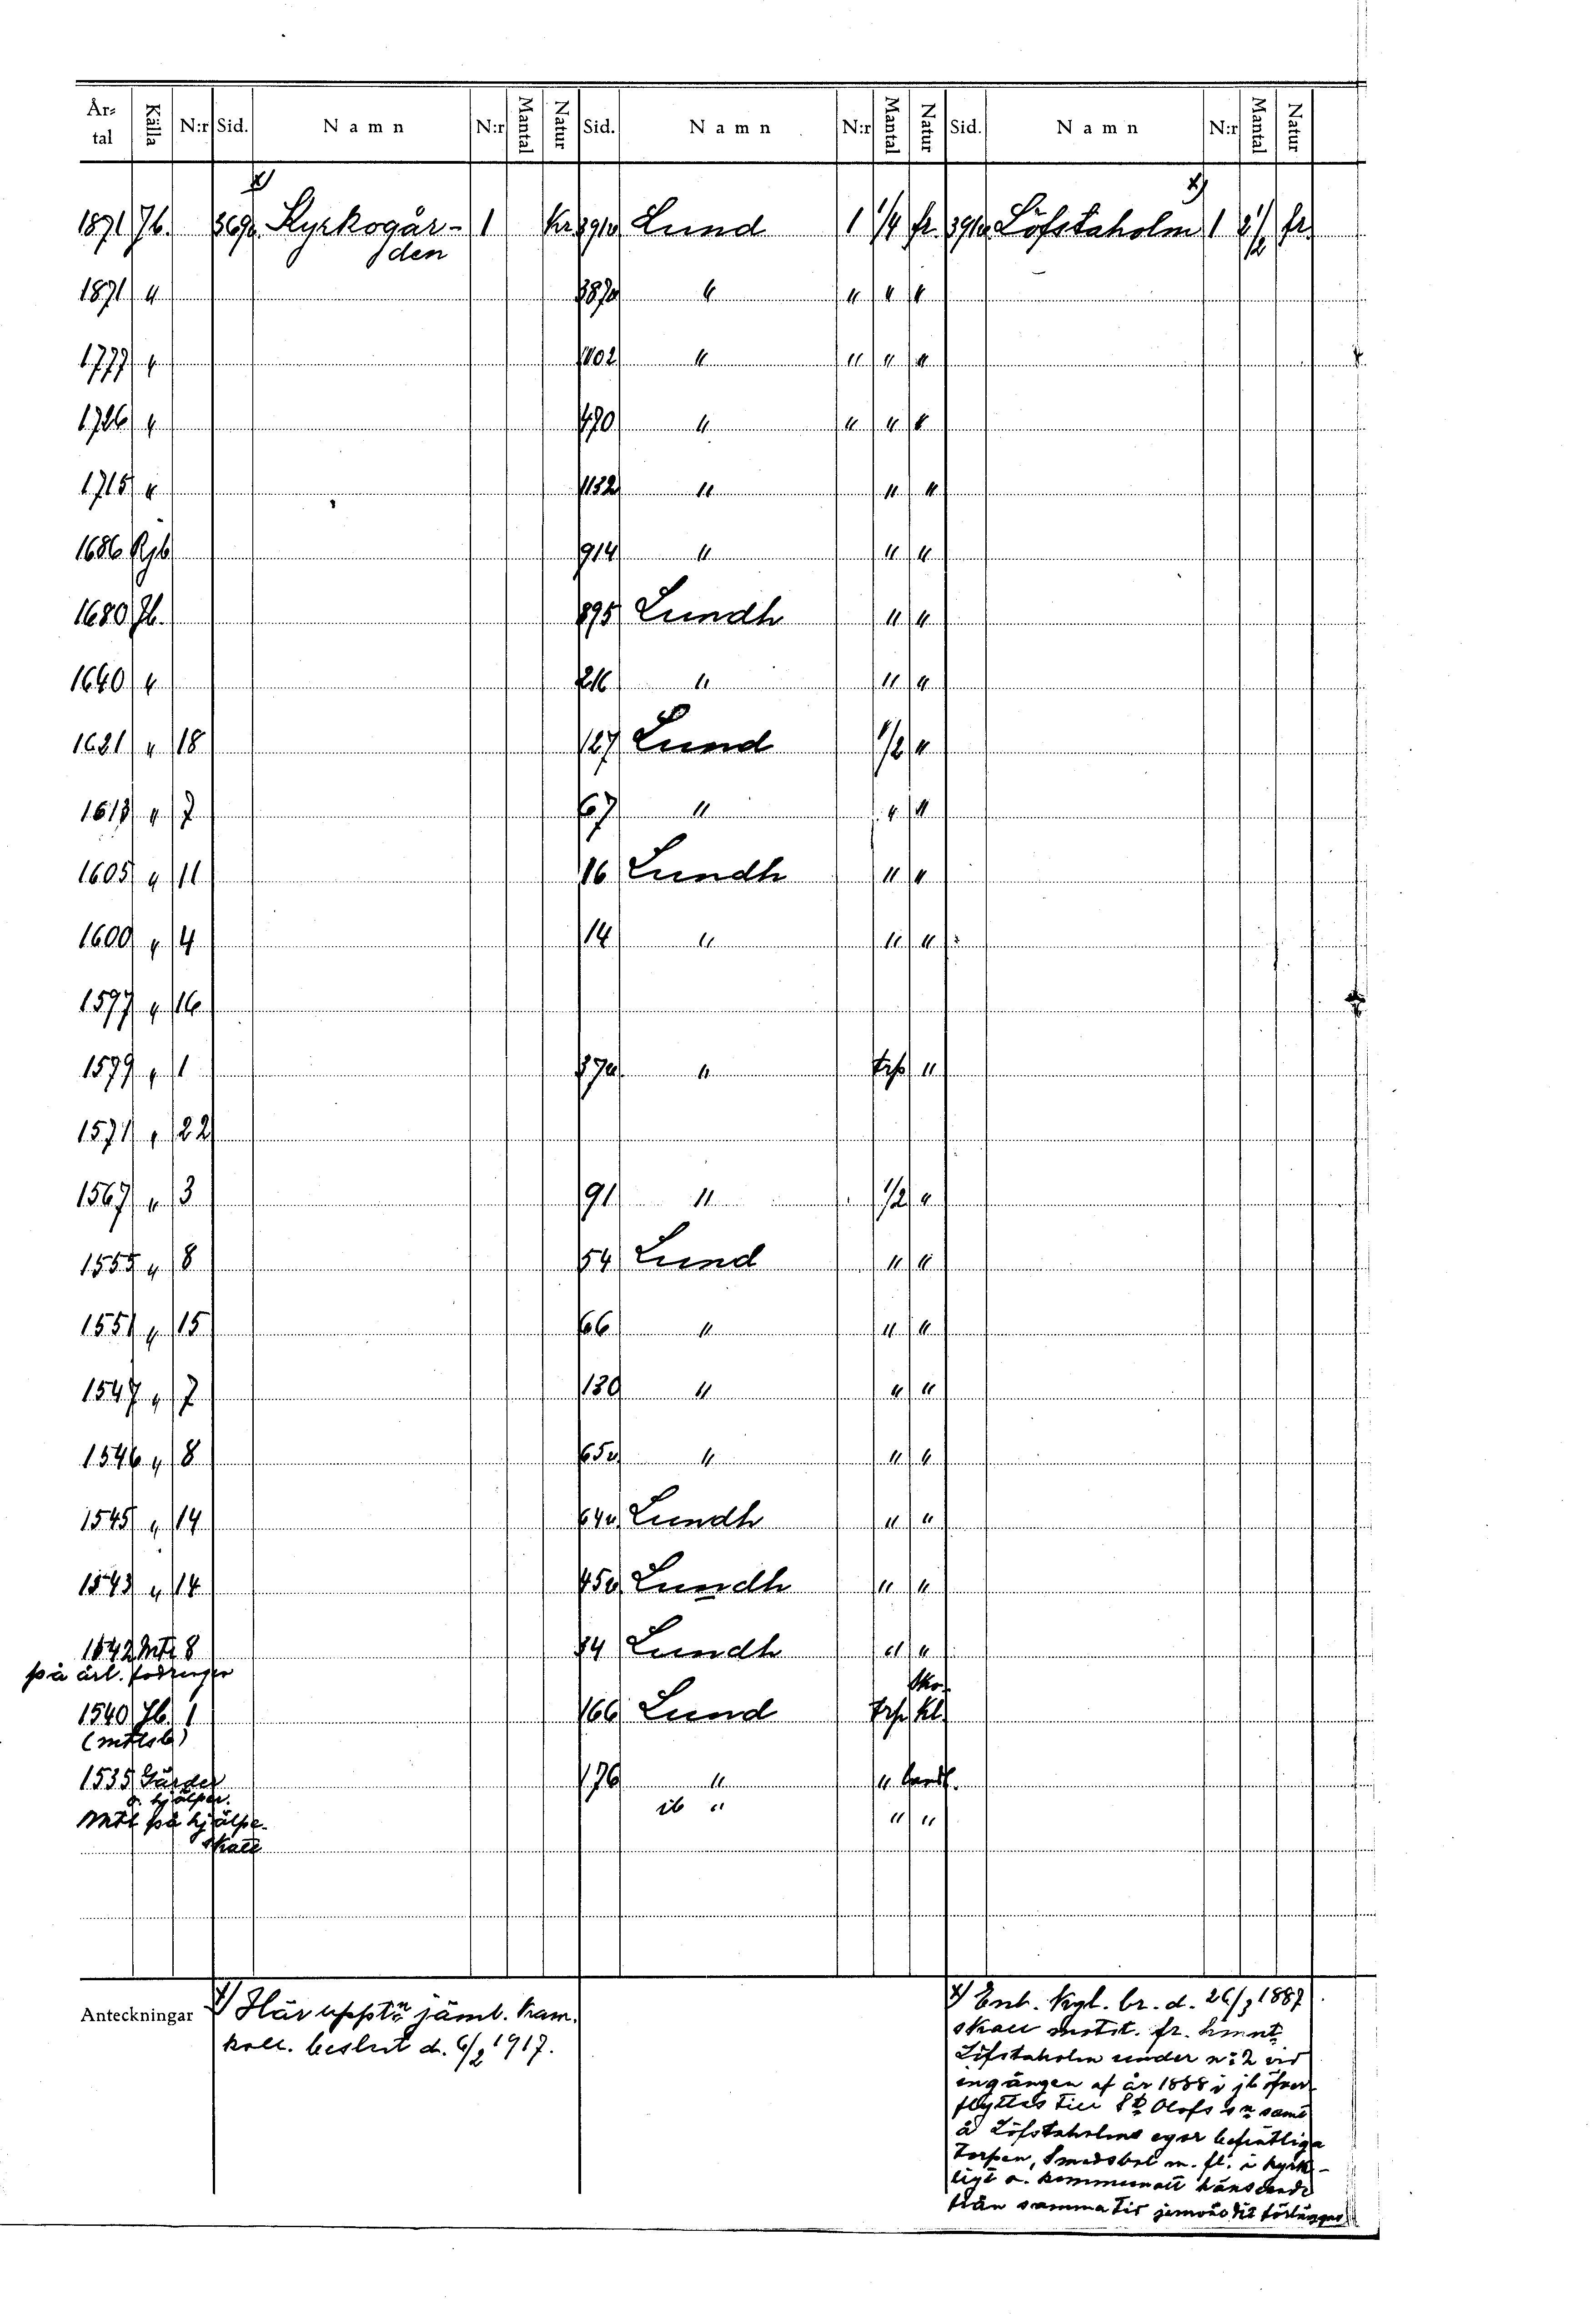 År- Källa N:r Sid. Namn N:r Mantal Natur Sid. Namn N:r Mantal Natur Sid. Namn N:r Mantal Natur
tal
x) x)
1871 Jb. 369b Kyrkogår- 1 kr. 391a Lund 1 1/4 fr. 391a Löfstaholm 1 2 1/2 fr.
den
1871 " 387a " " " "
1777 " 1102 " " " "
1726 " 470 " " " "
1715 " 1132 " " "
1686 Rjb 914 " " "
1680 Jb. 895 Lundh " "
1640 " 216 " " "
1621 " 18 127 Lund 1/2 "
1613 " 7 67 " " "
1605 " 11 16 Lundh " "
1600 " 4 14 " " "
1597 " 16
1579 " 1 37a " trp "
1571 " 22
1567 " 3 91 " 1/2 "
1555 " 8 54 Lund " "
1551 " 15 66 " " "
1547 " 7 130 " " "
1546 " 8 65a " " "
1545 " 14 64a Lundh " "
1543 " 14 45a Lundh " "
1542 Mtl 8 34 Lundh " "
på årl. fodringen
sko.
1540 Jb. 1 166 Lund trp kl.
(mtlsb)
1535 Gärder 176 " "
o. hjälper. ib "
Mtl på hjälpe- " "
skatt
Anteckningar x) Här uppt:n jäml. kam.
koll. beslut d. 6/2 1917.
x) Enl. kgl. br. d. 26/3 1887
skall mtst. fr. hmnt
Löfstaholm under n:2 vid
ingången af år 1888 i jb öfver-
flyttas till S:t Olofs s:n samt
å Löfstaholms egor befintliga
torpen, Smedsbol m. fl. i kyrk-
ligt o. kommunalt hänseende
från samma tid jemväl dit förläggas